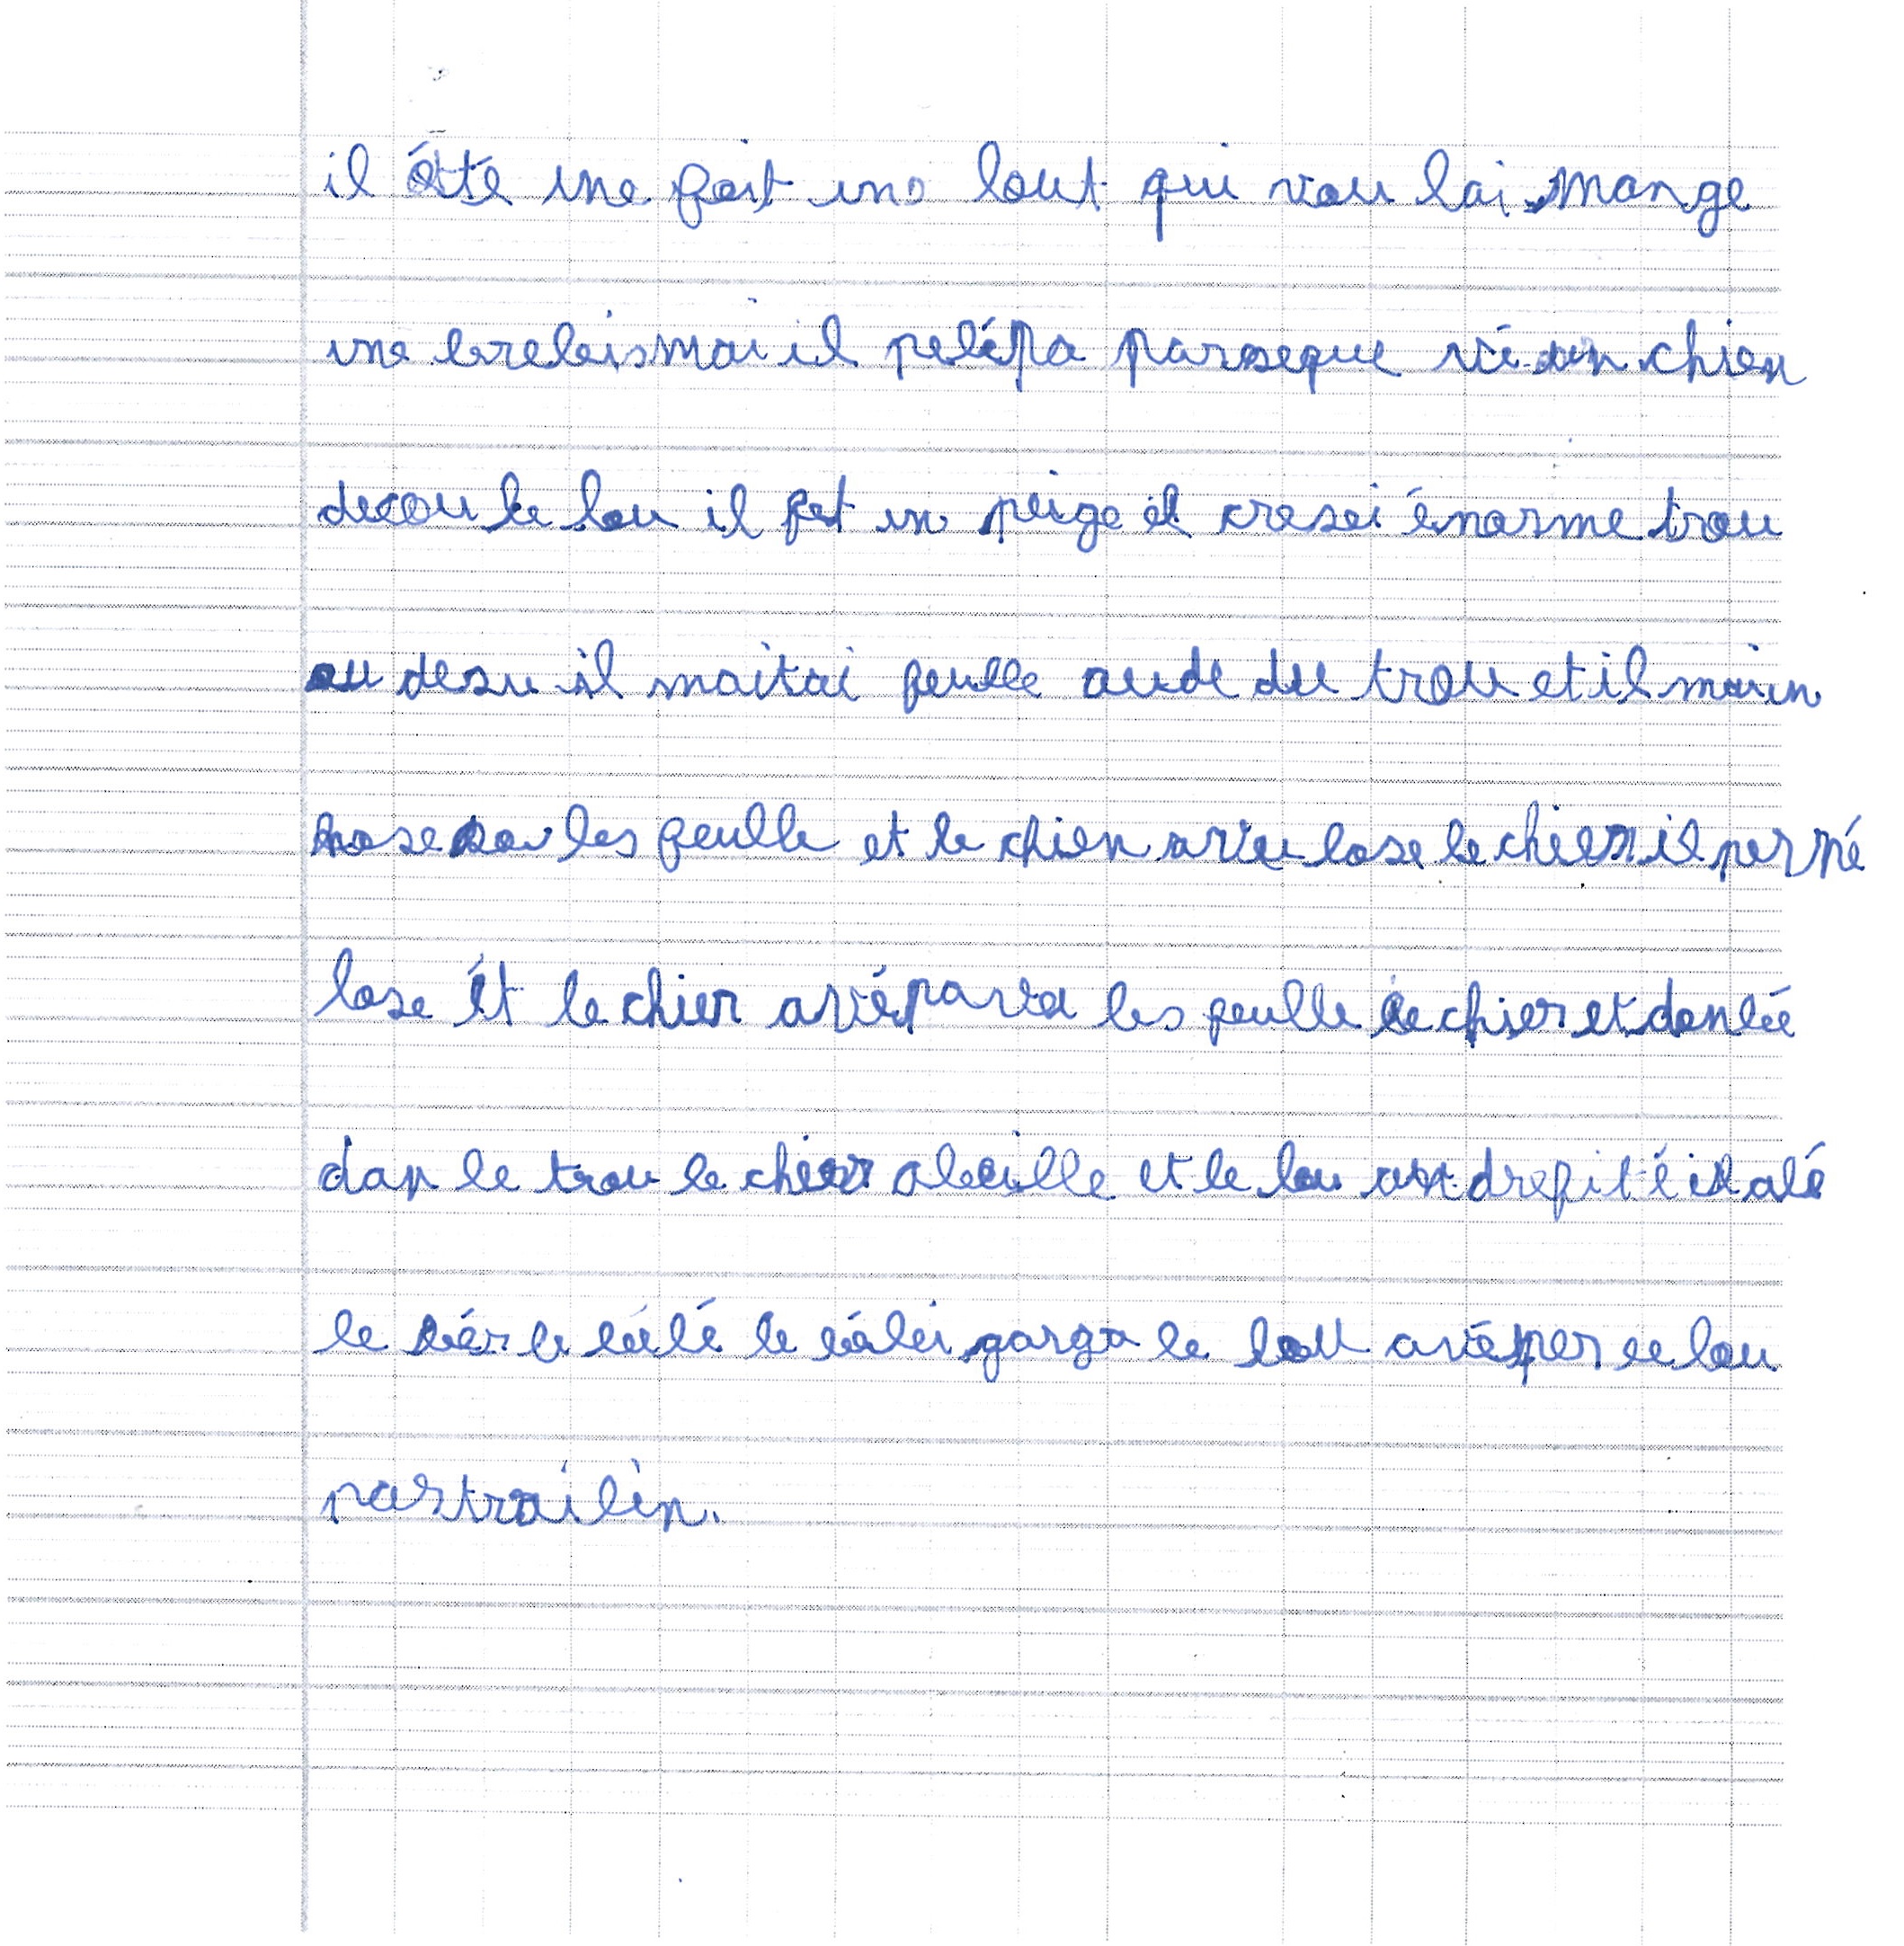 il été une foit un lout qui vou lai mange
une brebis mai il pelépa parseque vi un chien
decou le lou il fet un peige il cresei énorme trou
au desu il maitai feulle aude du trou et il mai un
nose sou les feulle et le chien aveu lose le chien il perné
lose ét le chier avé par les feulle le chier et donbé
dan le trou le chier abeille et le lou an drofité il alé
le bér le bélé le béléi garga le lou avé per le lou
partrailin.